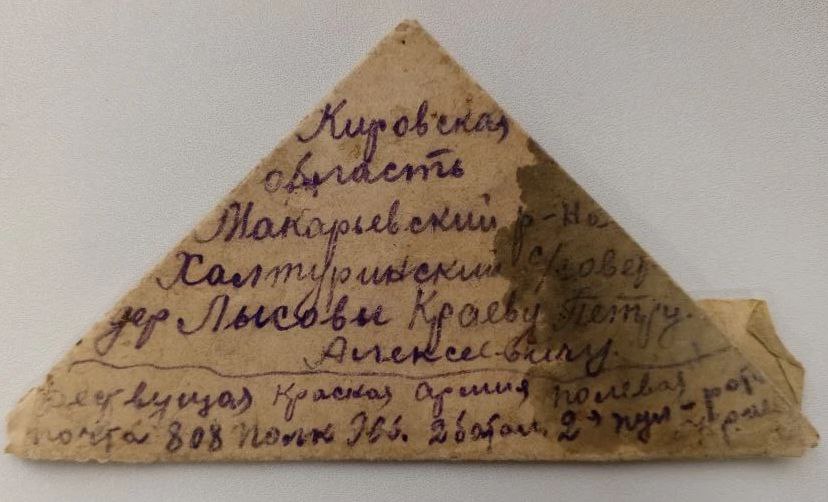 Кировская
область
Макарьевский р-на
Халтуринский с/совет
дер Лысовы Краеву Петру
Алексеевичу.
Действующая Красная армия полевая
почта 808 полк 2 батал. 2я пул-рота